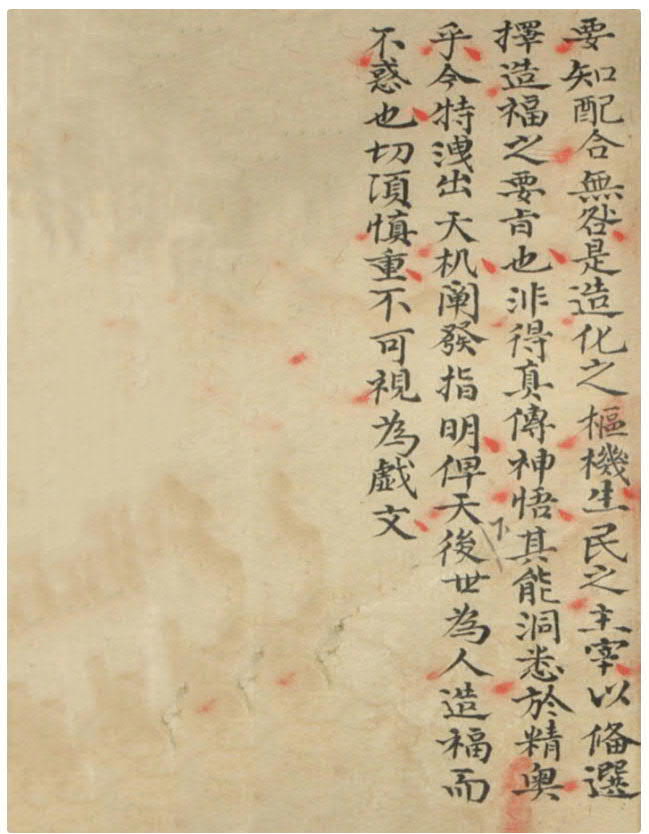 要知配合無咎是造化之樞機生民之主宰以俻選
擇造福之要旨也非得真傳神悟其能洞悉於精奥
乎今特洩出天机阐發指明俾天後世為人造福而
下
不惑也切湏慎重不可視為戯文